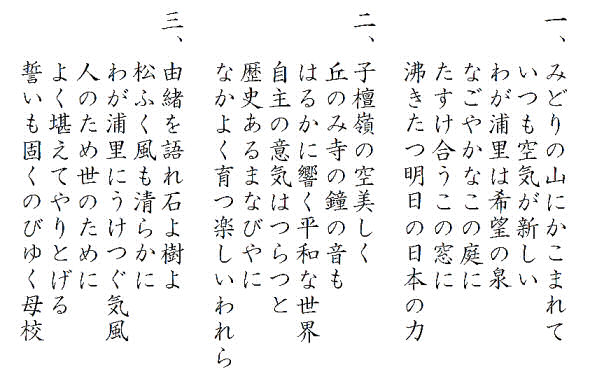 一、みどりの山にかこまれて
いつも空気が新しい
わが浦里は希望の泉
なごやかなこの庭に
たすけ合うこの窓に
沸きたつ明日の日本の力
二、子檀嶺の空美しく
丘のみ寺の鐘の音も
はるかに響く平和な世界
自主の意気はつらつと
歴史あるまなびやに
なかよく育つ楽しいわれら
三、由緒を語れ石よ樹よ
松ふく風も清らかに
わが浦里にうけつぐ気風
人のため世のために
よく堪えてやりとげる
誓いも固くのびゆく母校